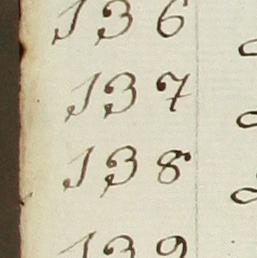 136
137
138
139